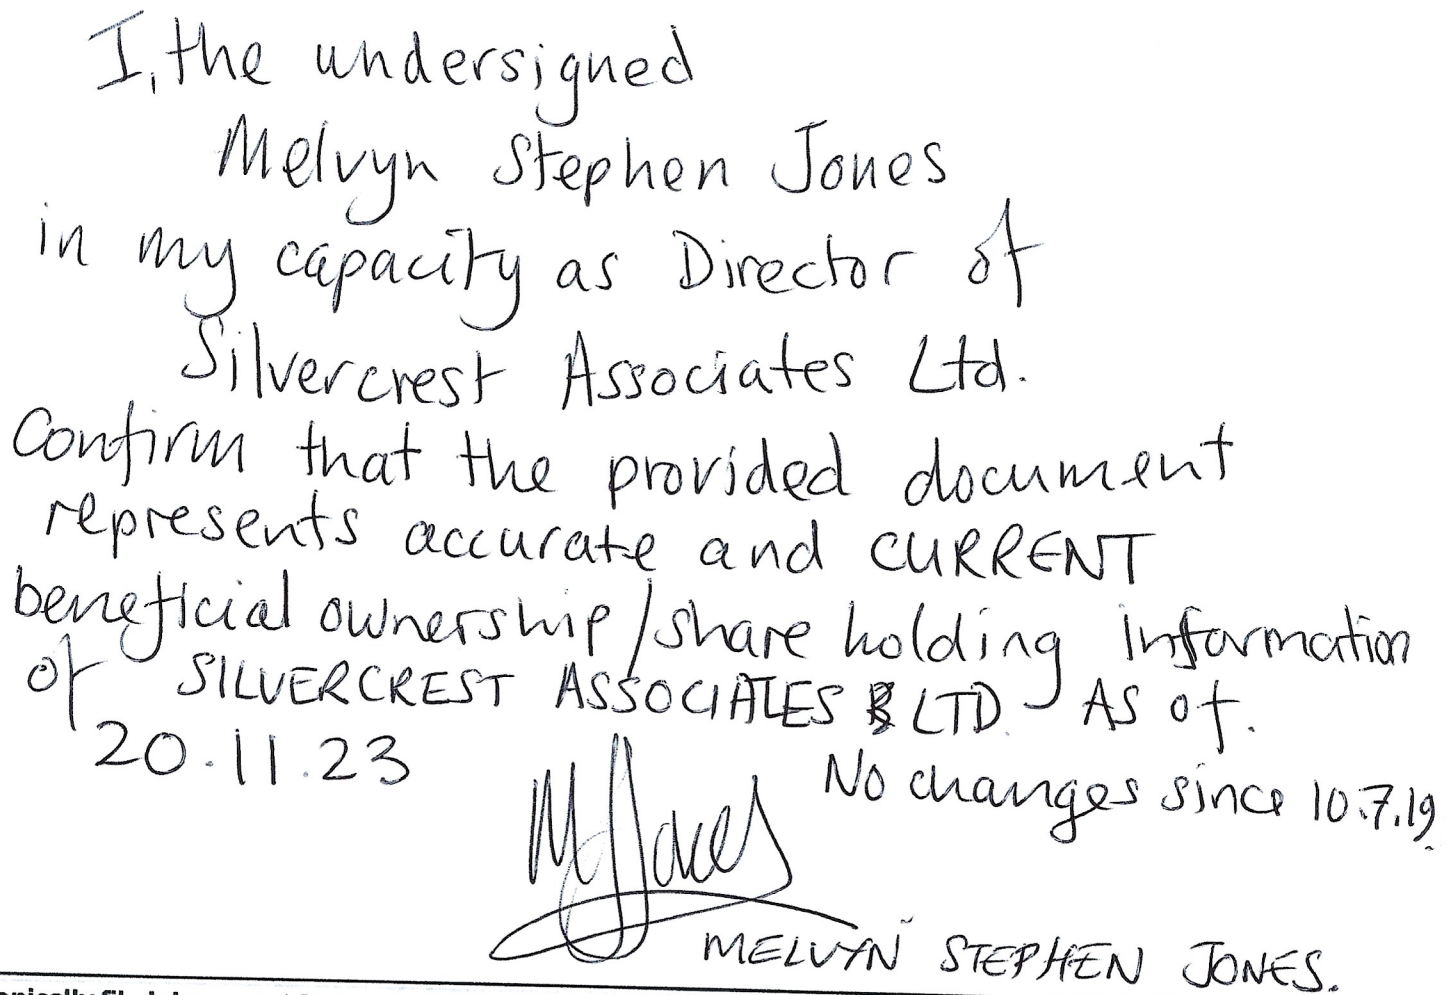 I, the undersigned
Melvyn Stephen Jones
in my capacity as Director of
Silvercrest Associates Ltd.
Confirm that the provided document
represents accurate and CURRENT
beneficial ownership/share holding information
of SILVERCREST ASSOCIATES LTD. AS of.
20.11.23
No changes since 10.7.19.
MJones
MELVYN STEPHEN JONES.